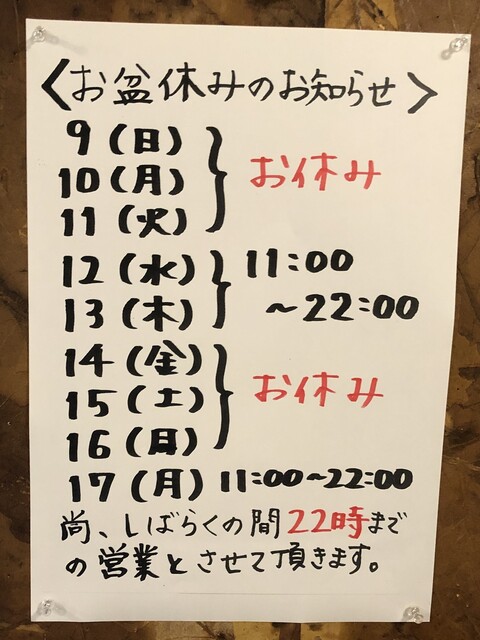 〈お盆休みのお知らせ〉
9(日)
10(月) お休み
11(火)
12(水) 11:00
13(木) ～22:00
14(金)
15(土) お休み
16(日)
17(月) 11:00～22:00
尚、しばらくの間22時まで
の営業とさせて頂きます。